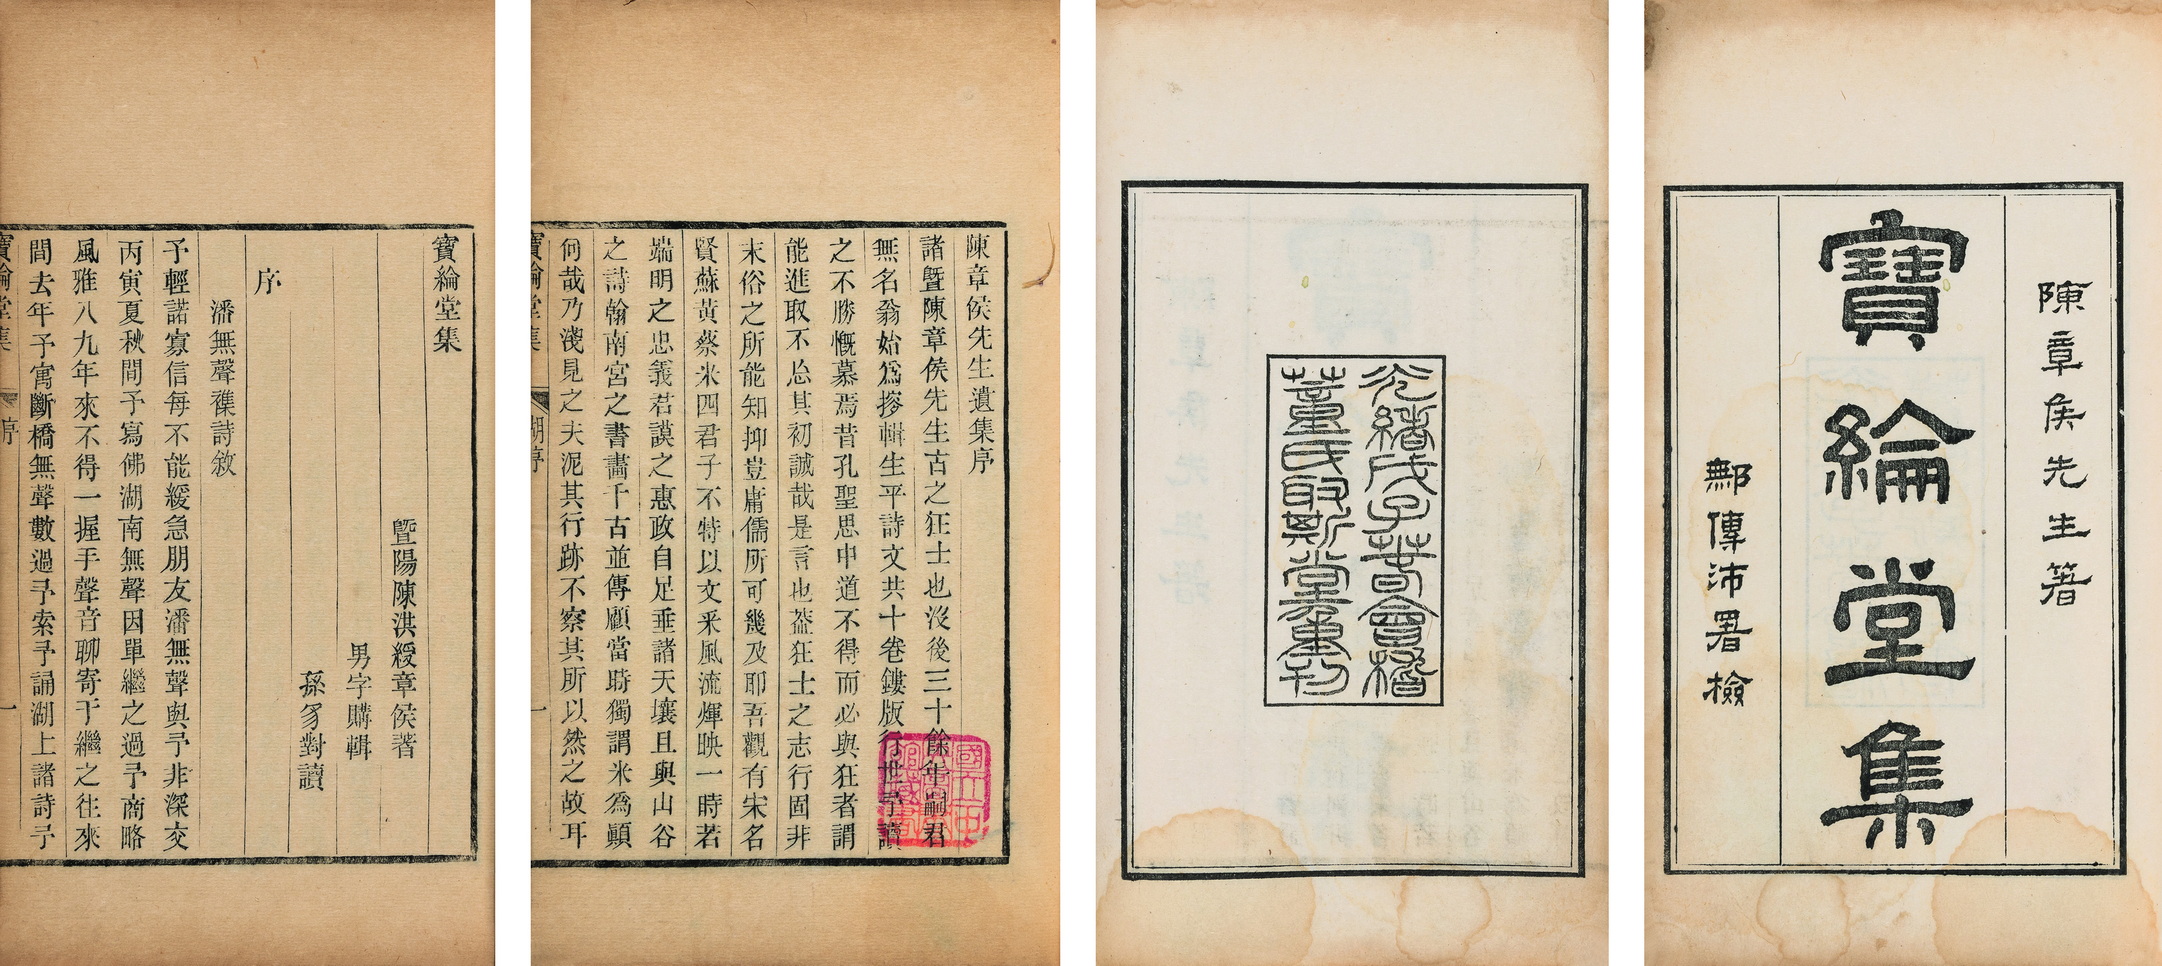 陳章侯先生著
寶綸堂集
鄦傳沛署檢
光緒戊子春會稽
董氏取斯堂重刊
陳章侯先生遺集序
諸暨陳章侯先生古之狂士也沒後三十餘年嗣君
無名翁始爲搜輯生平詩文共十卷鏤版行世予讀
之不勝慨慕焉昔孔聖思中道不得而必與狂者謂
能進取不忘其初誠哉是言也葢狂士之志行固非
末俗之所能知抑豈庸儒所可幾及耶吾觀有宋名
賢蘇黃蔡米四君子不特以文采風流煇映一時若
端明之忠義君謨之惠政自足垂諸天壤且與山谷
之詩翰南宮之書畵千古並傳顧當時獨謂米爲顚
何哉乃淺見之夫泥其行跡不察其所以然之故耳
寶綸堂集
胡序
一
寶綸堂集
暨陽陳洪綬章侯著
男字購輯
孫豸對讀
序
潘無聲襍詩敘
予輕諾寡信每不能緩急朋友潘無聲與予非深交
丙寅夏秋間予寫佛湖南無聲因單繼之過予商略
風雅八九年來不得一握手聲音聊寄于繼之往來
間去年予寓斷橋無聲數過予索予誦湖上諸詩予
寶綸堂集
序
一